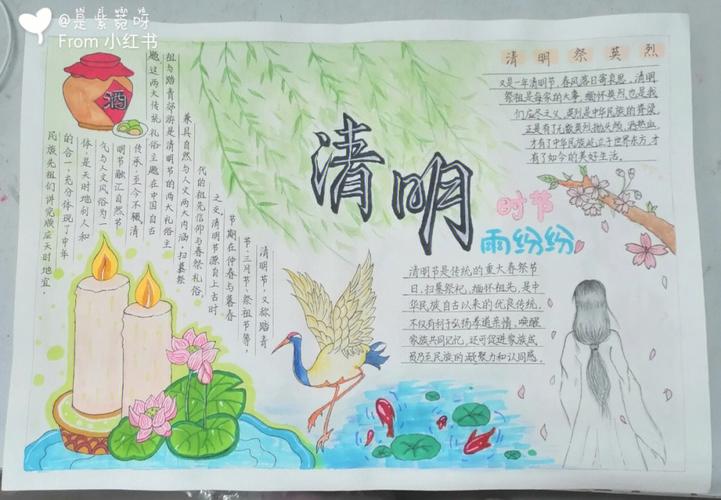 @是紫菀呀
From 小红书
酒
清明
时节
雨纷纷
清明祭英烈
又是一年清明节,春风落日寄哀思。清明
祭祖是每家的大事,缅怀英烈也是我
们应尽之义。英烈是中华民族的脊梁
正是有了无数英烈抛头颅、洒热血,
才有了中华民族屹立于世界东方,才
有了如今的美好生活。
清明节是传统的重大春祭节
日,扫墓祭祀、缅怀祖先,是中
华民族自古以来的优良传统,
不仅有利于弘扬孝道亲情、唤醒
家族共同记忆,还可促进家族成
员乃至民族的凝聚力和认同感。
清明节,又称踏青
节、三月节、祭祖节等,
节期在仲春与暮春
之交。清明节源自上古时
代的祖先信仰与春祭礼俗,
兼具自然与人文两大内涵,扫墓祭
祖与踏青郊游是清明节的两大礼俗主
题,这两大传统礼俗主题在中国自古
传承,至今不辍。清
明节融汇自然节
气与人文风俗为一
体,是天时地利人和
的合一,充分体现了中华
民族先祖们讲究顺应天时地宜,